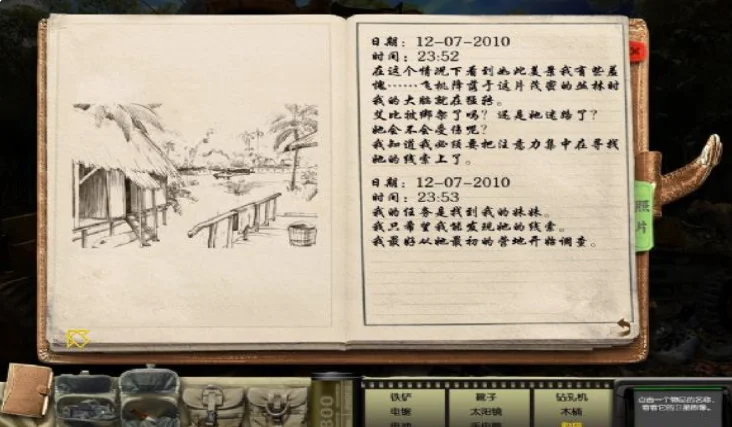 日期: 12-07-2010
时间: 23:52
在这个情况下看到如此美景我有些羞
愧……飞机降落于这片茂密的丛林时
我的大脑就在猛转。
艾比被绑架了吗？还是她迷路了？
她会不会受伤呢？
我知道我必须要把注意力集中在寻找
她的线索上了。
日期: 12-07-2010
时间: 23:53
我的任务是找到我的妹妹。
我只希望我能发现她的线索。
我最好从她最初的营地开始调查。
照
片
800
铁铲
靴子
钻孔机
电锯
太阳镜
木桶
点击一个物品的名称，
看看它的卫星图像。